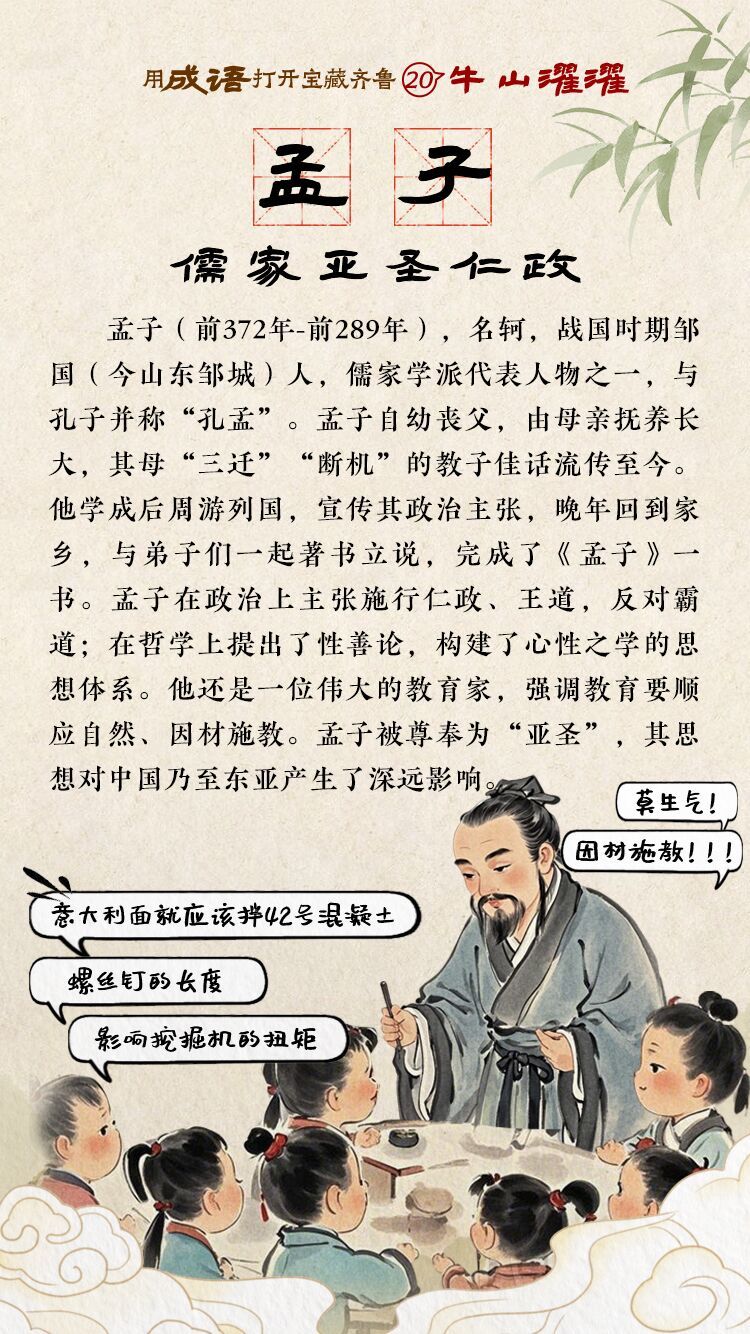 用成语打开宝藏齐鲁⑳牛山濯濯
孟子
儒家亚圣仁政
孟子（前372年-前289年），名轲，战国时期邹
国（今山东邹城）人，儒家学派代表人物之一，与
孔子并称“孔孟”。孟子自幼丧父，由母亲抚养长
大，其母“三迁”“断机”的教子佳话流传至今。
他学成后周游列国，宣传其政治主张，晚年回到家
乡，与弟子们一起著书立说，完成了《孟子》一
书。孟子在政治上主张施行仁政、王道，反对霸
道；在哲学上提出了性善论，构建了心性之学的思
想体系。他还是一位伟大的教育家，强调教育要顺
应自然、因材施教。孟子被尊奉为“亚圣”，其思
想对中国乃至东亚产生了深远影响。
莫生气！
因材施教！！！
意大利面就应该拌42号混凝土
螺丝钉的长度
影响挖掘机的扭矩